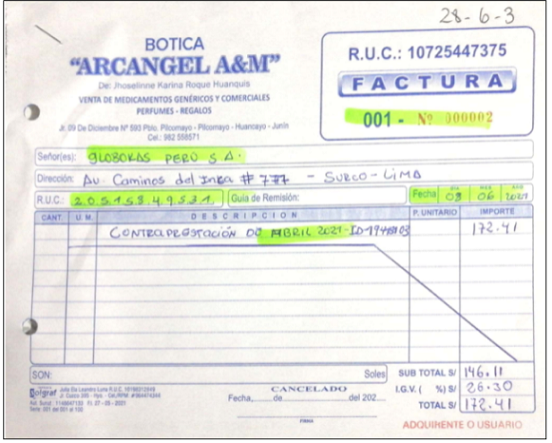 28-6-3
BOTICA
"ARCANGEL A&M"
De: Jhoselinne Karina Roque Huanquis
VENTA DE MEDICAMENTOS GENÉRICOS Y COMERCIALES
PERFUMES - REGALOS
Jr. 09 De Diciembre Nº 593 Pblo. Pilcomayo - Pilcomayo - Huancayo - Junín
Cel.: 982 558571
R.U.C.: 10725447375
FACTURA
001 - Nº 000002
Señor(es): GLOBOKAS PERÚ S A.
Dirección: Av. Caminos del Inka # 777 - SURCO - LIMA
R.U.C.: 20515849531 Guía de Remisión: Fecha DIA MES AÑO 08 06 2021
CANT. U.M. DESCRIPCION P. UNITARIO IMPORTE
CONTRAPRESTACIÓN DE ABRIL 2021 - 172.41
SON: Soles
SUB TOTAL S/ 146.11
I.G.V. ( %) S/ 26.30
TOTAL S/ 172.41
CANCELADO
Fecha, de del 202
FIRMA
ADQUIRENTE O USUARIO